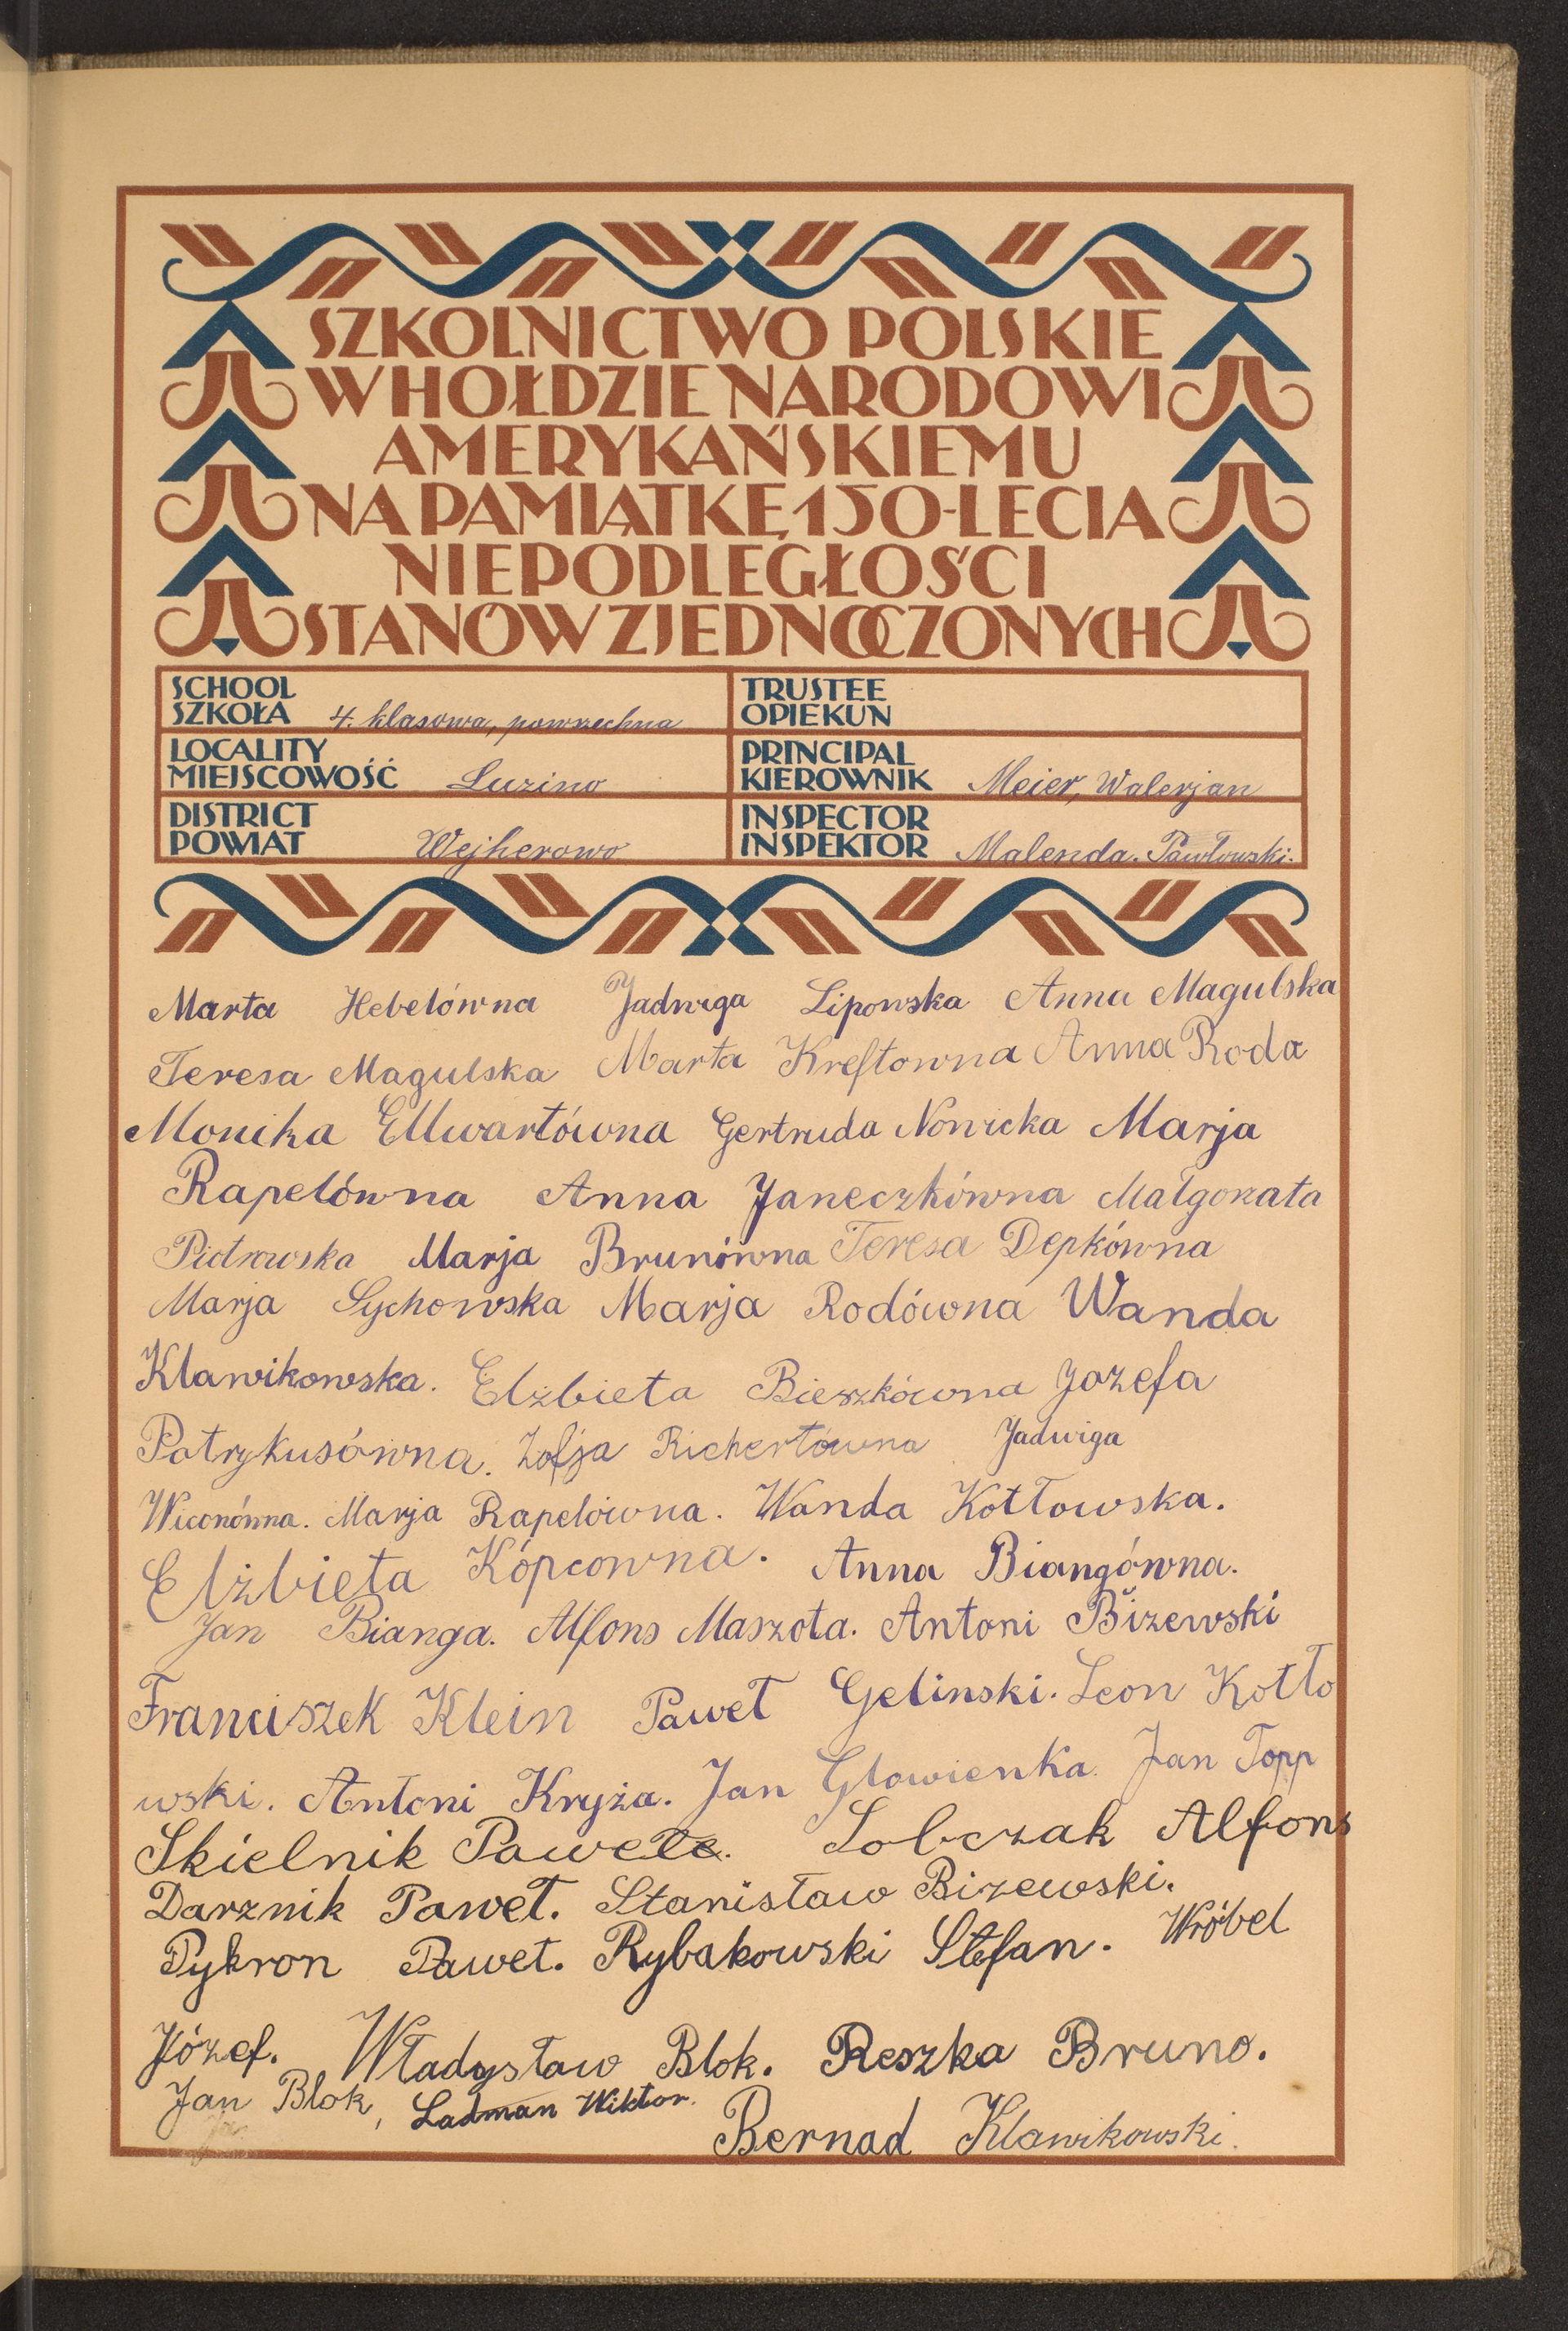 SZKOLNICTWO POLSKIE
W HOŁDZIE NARODOWI
AMERYKAŃSKIEMU
NA PAMIĄTKĘ 150-LECIA
NIEPODLEGŁOŚCI
STANÓW ZJEDNOCZONYCH
SCHOOL
SZKOŁA 4. klasowa, powszechna
TRUSTEE
OPIEKUN
LOCALITY
MIEJSCOWOŚĆ Luzino
PRINCIPAL
KIEROWNIK Meier, Walerjan
DISTRICT
POWIAT Wejherowo
INSPECTOR
INSPEKTOR Malenda. Pawłowski.
Marta Hebelówna Jadwiga Lipowska Anna Magulska
Teresa Magulska Marta Kreftowna Anna Roda
Monika Ellwartówna Gertruda Nowicka Marja
Rapelówna Anna Janeczkówna Małgorzata
Piotrowska Marja Brunówna Teresa Depkówna
Marja Sychowska Marja Rodówna Wanda
Klawikowska. Elżbieta Bieszkówna Jozefa
Patrykusówna. Zofja Richertówna Jadwiga
Marja Rapelówna. Wanda Kotłowska.
Elżbieta Kópcowna. Anna Biangówna.
Jan Bianga. Alfons Maszota. Antoni Bizewski
Franciszek Klein Paweł Gelinski. Leon Kotło
wski. Antoni Kryża. Jan Glowienka. Jan Topp
Skielnik Paweł. Lobczak Alfons
Darznik Paweł. Stanisław Bizewski.
Pykron Paweł. Rybakowski Stefan. Wróbel
Józef. Władysław Blok. Reszka Bruno.
Jan Blok, Ladman Wiktor.
Bernad Klawikowski.